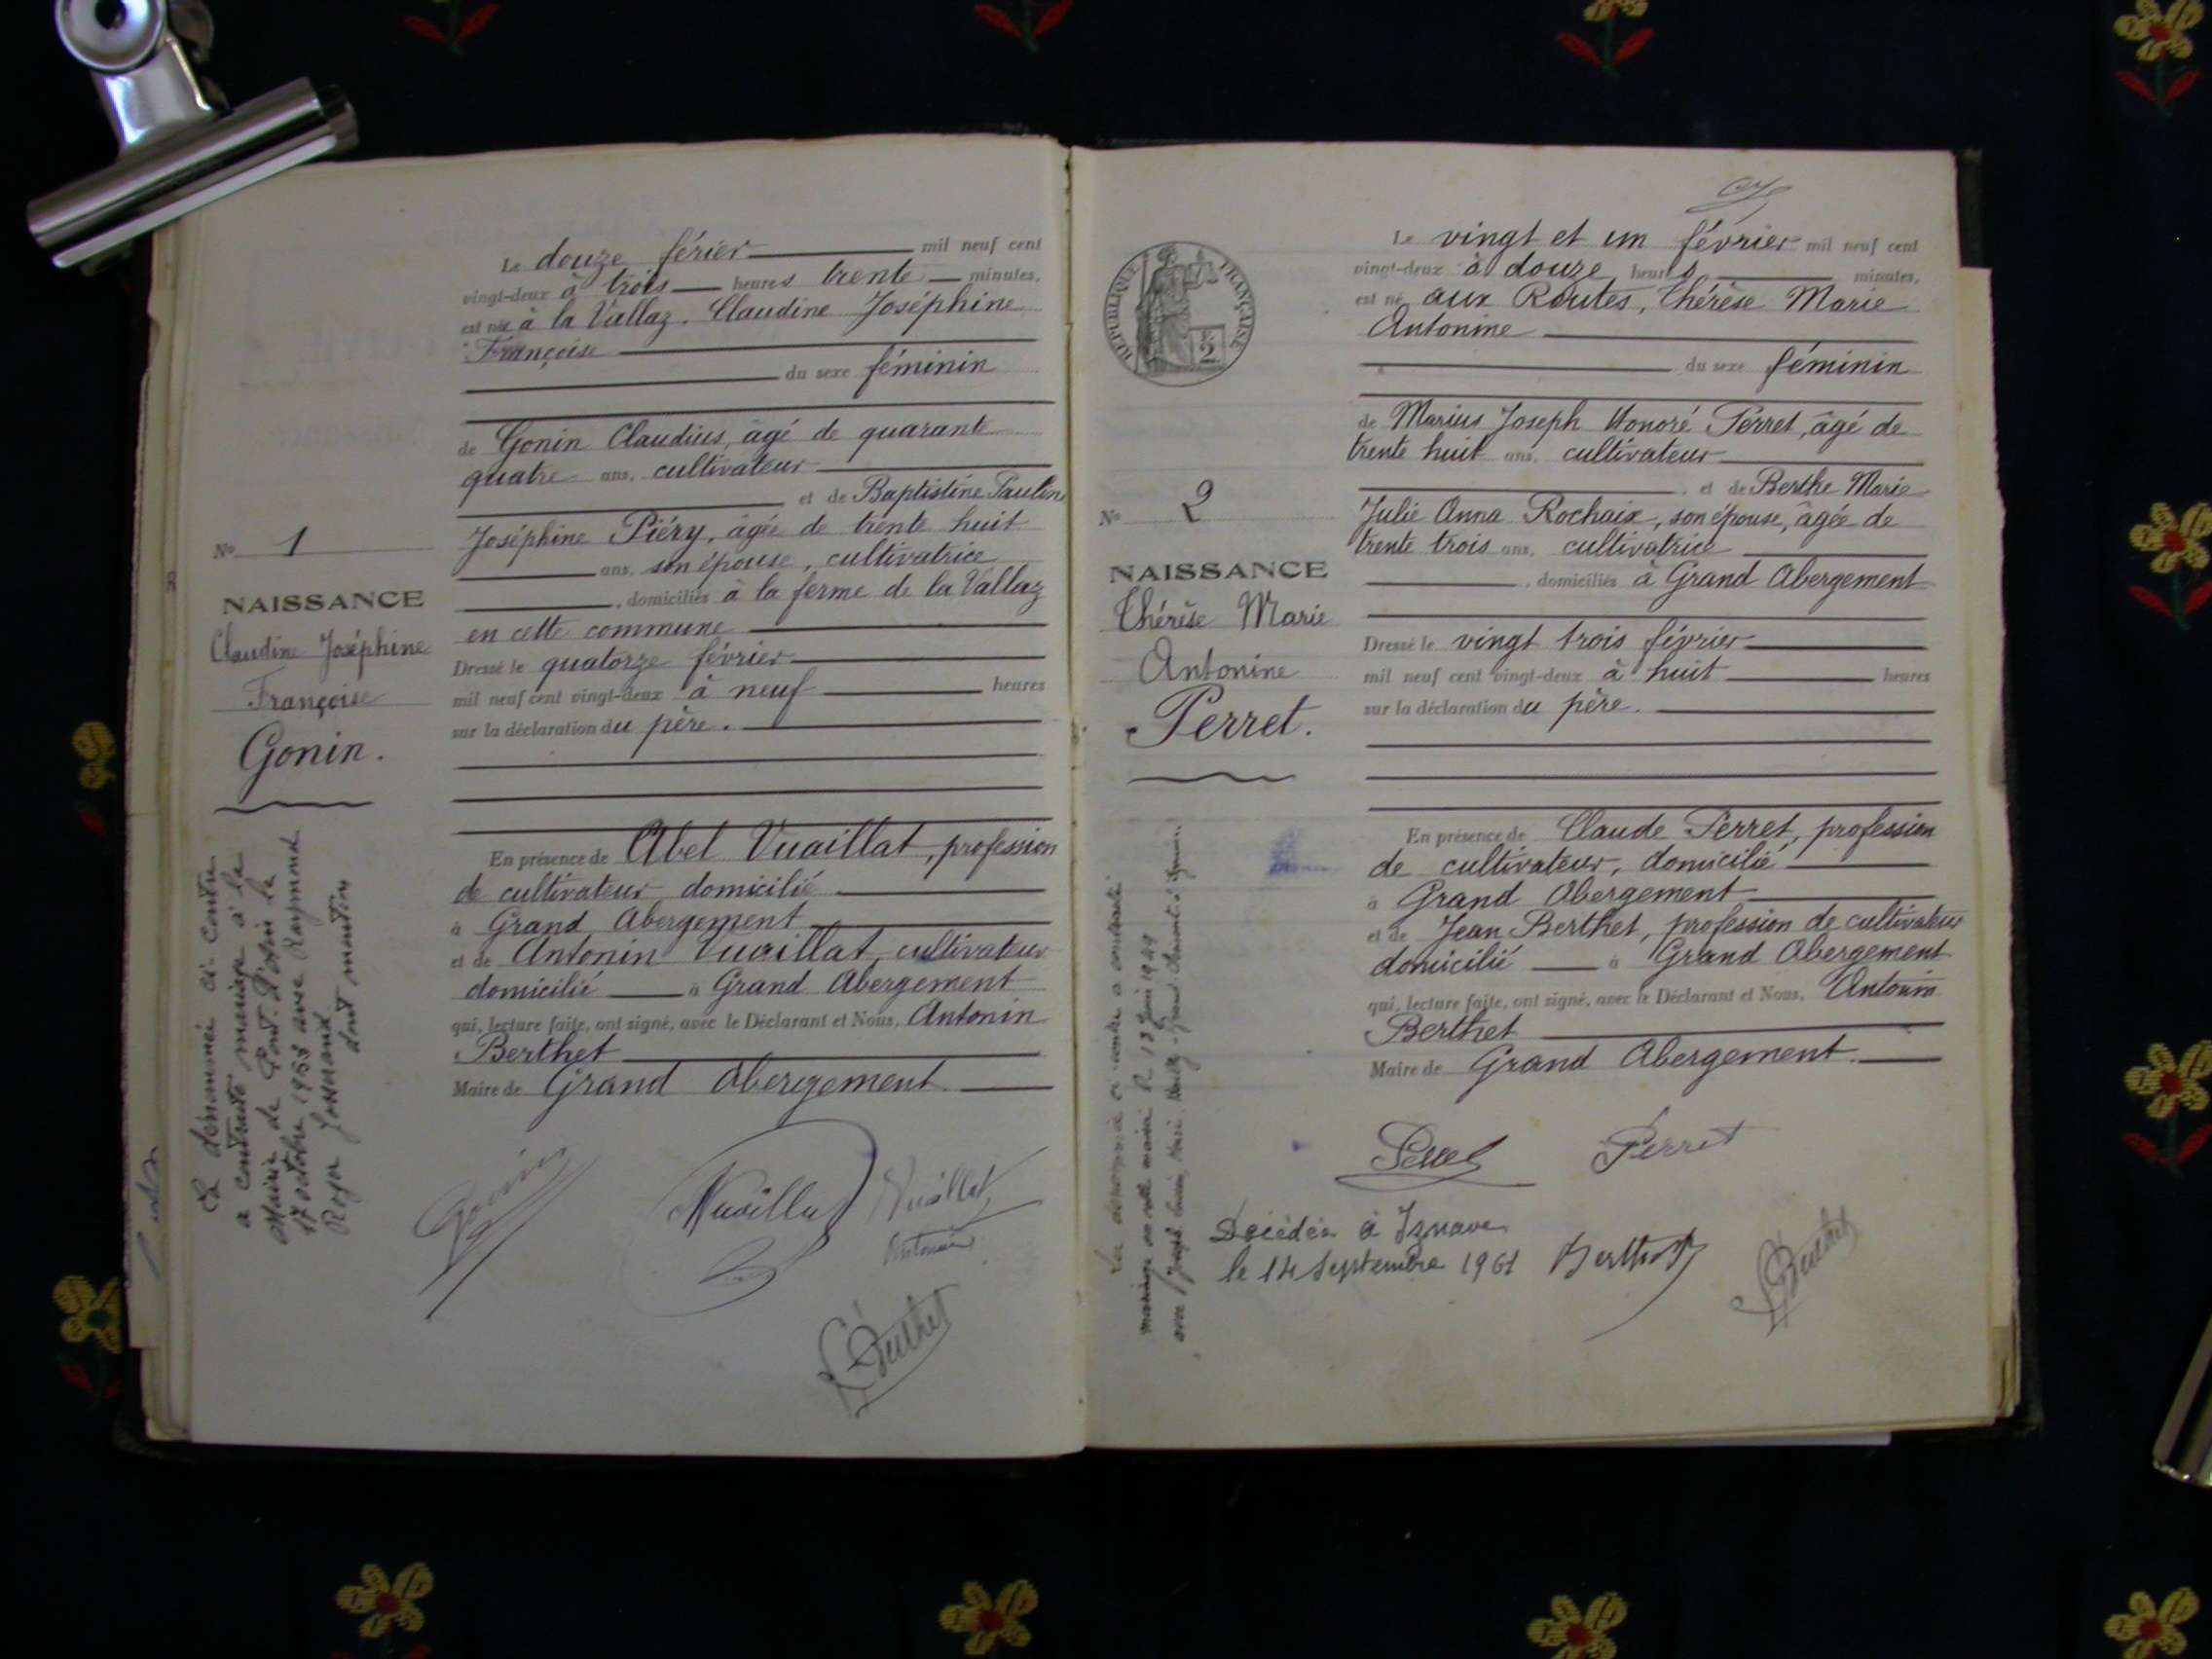 Le douze férier mil neuf cent
vingt-deux à trois heures trente minutes,
est née à la Vallaz. Claudine Joséphine
Françoise
du sexe féminin
de Gonin Claudius, âgé de quarante
quatre ans, cultivateur
et de Baptistine Pauline
Joséphine Piéry, âgée de trente huit
ans, son épouse, cultivatrice
, domiciliés à la ferme de la Vallaz
en cette commune
Dressé le quatorze février
mil neuf cent vingt-deux à neuf heures
sur la déclaration du père.
En présence de Abel Vuaillat, profession
de cultivateur domicilié
à Grand Abergement
et de Antonin Vuaillat, cultivateur
domicilié à Grand Abergement
qui, lecture faite, ont signé, avec le Déclarant et Nous, Antonin
Berthet
Maire de Grand Aberegement
No 1
NAISSANCE
Claudine Joséphine
Françoise
Gonin.
La dénommée ci-contre
a contracté mariage à la
Mairie de Pont d'Ain le
17 octobre 1953 avec Raymond
Roger
dont mention
Gonin
Vuaillat
Vuaillat
Antonin
Berthet
Le vingt et un février mil neuf cent
vingt-deux à douze heures minutes,
est né aux Routes, Thérèse Marie
Antonine
du sexe féminin
de Marius Joseph Honoré Perret, âgé de
trente huit ans, cultivateur
, et de Berthe Marie
Julie Anna Rochaix, son épouse, âgée de
trente trois ans, cultivatrice
, domiciliés à Grand Abergement
Dressé le vingt trois février
mil neuf cent vingt-deux à huit heures
sur la déclaration du père.
En présence de Claude Perret, profession
de cultivateur, domicilié
à Grand Abergement
et de Jean Berthet, profession de cultivateur
domicilié à Grand Abergement
qui, lecture faite, ont signé, avec le Déclarant et Nous, Antonin
Berthet
Maire de Grand Abergement.
RÉPUBLIQUE FRANÇAISE
No 2
NAISSANCE
Thérèse Marie
Antonine
Perret.
La dénommée ci-contre a contracté
mariage en cette mairie le 13 juin
avec Joseph
Perret
Perret
Décédée à Iznave
le 14 Septembre 1961
Berthet
Berthet